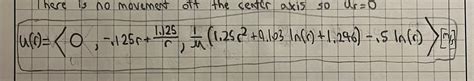 There is no movement off the center axis so u_r=0
u(r)=⟨0, -.125r+1.125/r, 1/μ(1.25r²+9.103 ln(r)+1.296)-.5 ln(r)⟩[m/s]